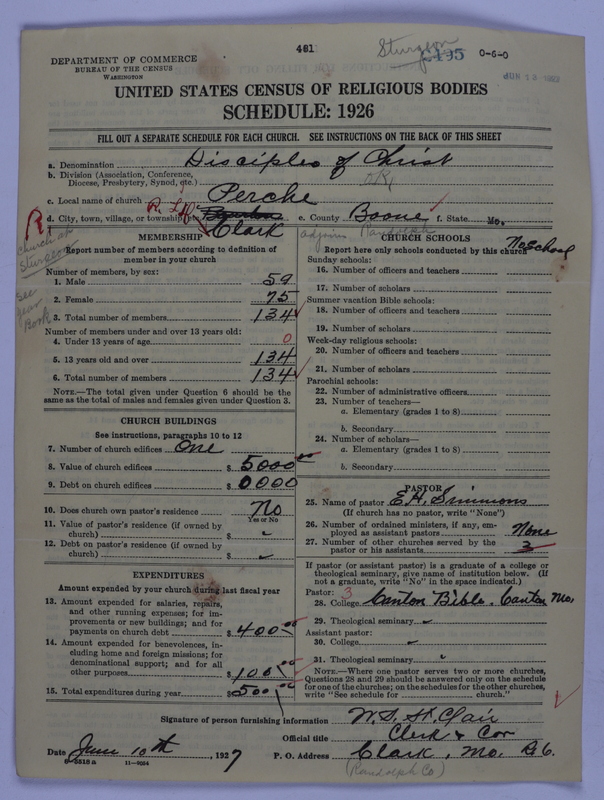 481
Sturgeon
C495
0-6-0
JUN 13 1927
DEPARTMENT OF COMMERCE
BUREAU OF THE CENSUS
WASHINGTON
UNITED STATES CENSUS OF RELIGIOUS BODIES
SCHEDULE: 1926
FILL OUT A SEPARATE SCHEDULE FOR EACH CHURCH. SEE INSTRUCTIONS ON THE BACK OF THIS SHEET
a. Denomination Disciples of Christ
b. Division (Association, Conference,
Diocese, Presbytery, Synod, etc.)
c. Local name of church Perche
d. City, town, village, or township
Clark
e. County Boone f. State Mo.
adjoins Randolph
R
church at
Sturgeon
see
year
Book
MEMBERSHIP
Report number of members according to definition of
member in your church
Number of members, by sex:
1. Male 59
2. Female 75
3. Total number of members 134
Number of members under and over 13 years old:
4. Under 13 years of age 0
5. 13 years old and over 134
6. Total number of members 134
NOTE.—The total given under Question 6 should be the
same as the total of males and females given under Question 3.
CHURCH BUILDINGS
See instructions, paragraphs 10 to 12
7. Number of church edifices One
8. Value of church edifices $5000.00
9. Debt on church edifices $0000
10. Does church own pastor's residence No
Yes or No
11. Value of pastor's residence (if owned by
church) $
12. Debt on pastor's residence (if owned by
church) $
EXPENDITURES
Amount expended by your church during last fiscal year
13. Amount expended for salaries, repairs,
and other running expenses; for im-
provements or new buildings; and for
payments on church debt $400.00
14. Amount expended for benevolences, in-
cluding home and foreign missions; for
denominational support; and for all
other purposes $100.00
15. Total expenditures during year $500.00
CHURCH SCHOOLS
Report here only schools conducted by this church No School
Sunday schools:
16. Number of officers and teachers
17. Number of scholars
Summer vacation Bible schools:
18. Number of officers and teachers
19. Number of scholars
Week-day religious schools:
20. Number of officers and teachers
21. Number of scholars
Parochial schools:
22. Number of administrative officers
23. Number of teachers—
a. Elementary (grades 1 to 8)
b. Secondary
24. Number of scholars—
a. Elementary (grades 1 to 8)
b. Secondary
PASTOR
25. Name of pastor E.H. Simmons
(If church has no pastor, write "None")
26. Number of ordained ministers, if any, em-
ployed as assistant pastors None
27. Number of other churches served by the
pastor or his assistants 3
If pastor (or assistant pastor) is a graduate of a college or
theological seminary, give name of institution below. (If
not a graduate, write "No" in the space indicated.)
Pastor: 3
28. College Canton Bible. Canton Mo.
29. Theological seminary
Assistant pastor:
30. College
31. Theological seminary
NOTE.—Where one pastor serves two or more churches,
Questions 28 and 29 should be answered only on the schedule
for one of the churches; on the schedules for the other churches,
write "See schedule for church."
Signature of person furnishing information W.S. St. Clair
Official title Clerk & Cor
Date June 10th, 1927
P. O. Address Clark, Mo.
(Randolph Co)
6-5518a 11-9024